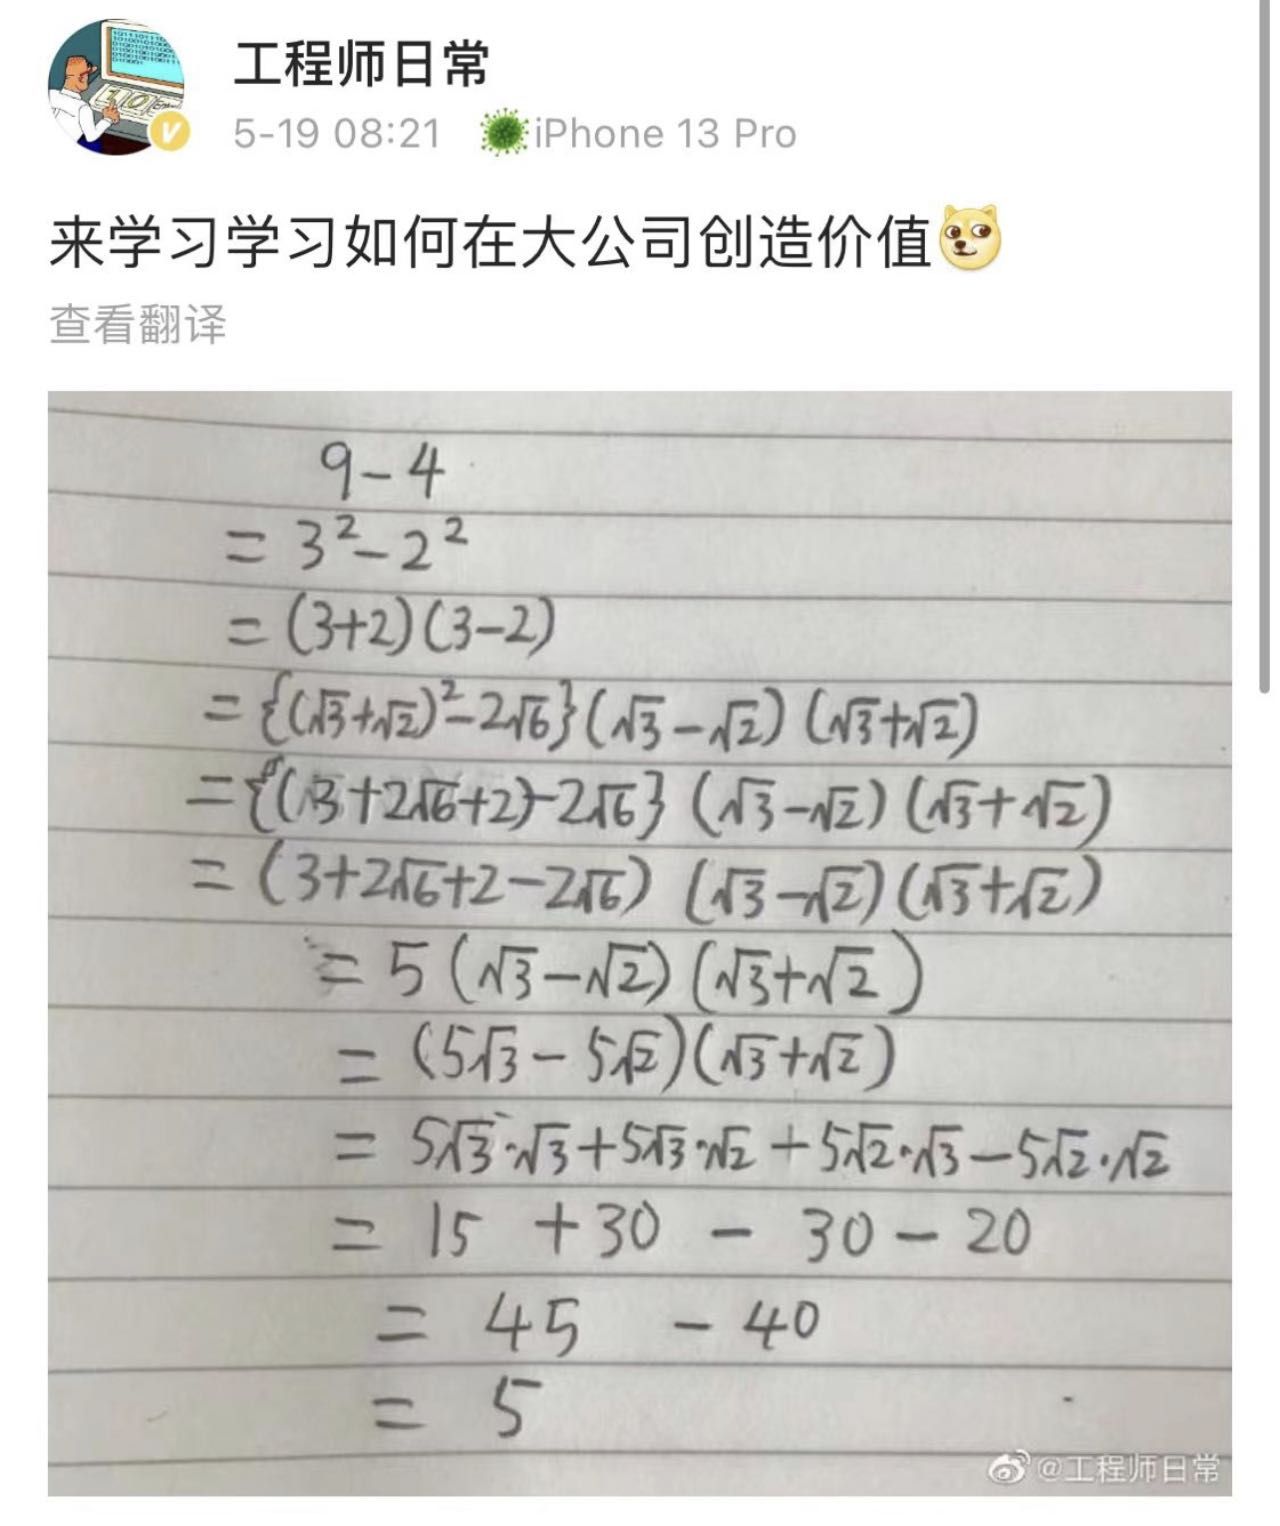 工程师日常
5-19 08:21 iPhone 13 Pro
来学习学习如何在大公司创造价值
查看翻译
9-4
= 3²-2²
= (3+2)(3-2)
= {(√3+√2)²-2√6}(√3-√2)(√3+√2)
= {(3+2√6+2)-2√6}(√3-√2)(√3+√2)
= (3+2√6+2-2√6)(√3-√2)(√3+√2)
= 5(√3-√2)(√3+√2)
= (5√3-5√2)(√3+√2)
= 5√3·√3+5√3·√2+5√2·√3-5√2·√2
= 15 +30 - 30-20
= 45 -40
= 5
@工程师日常